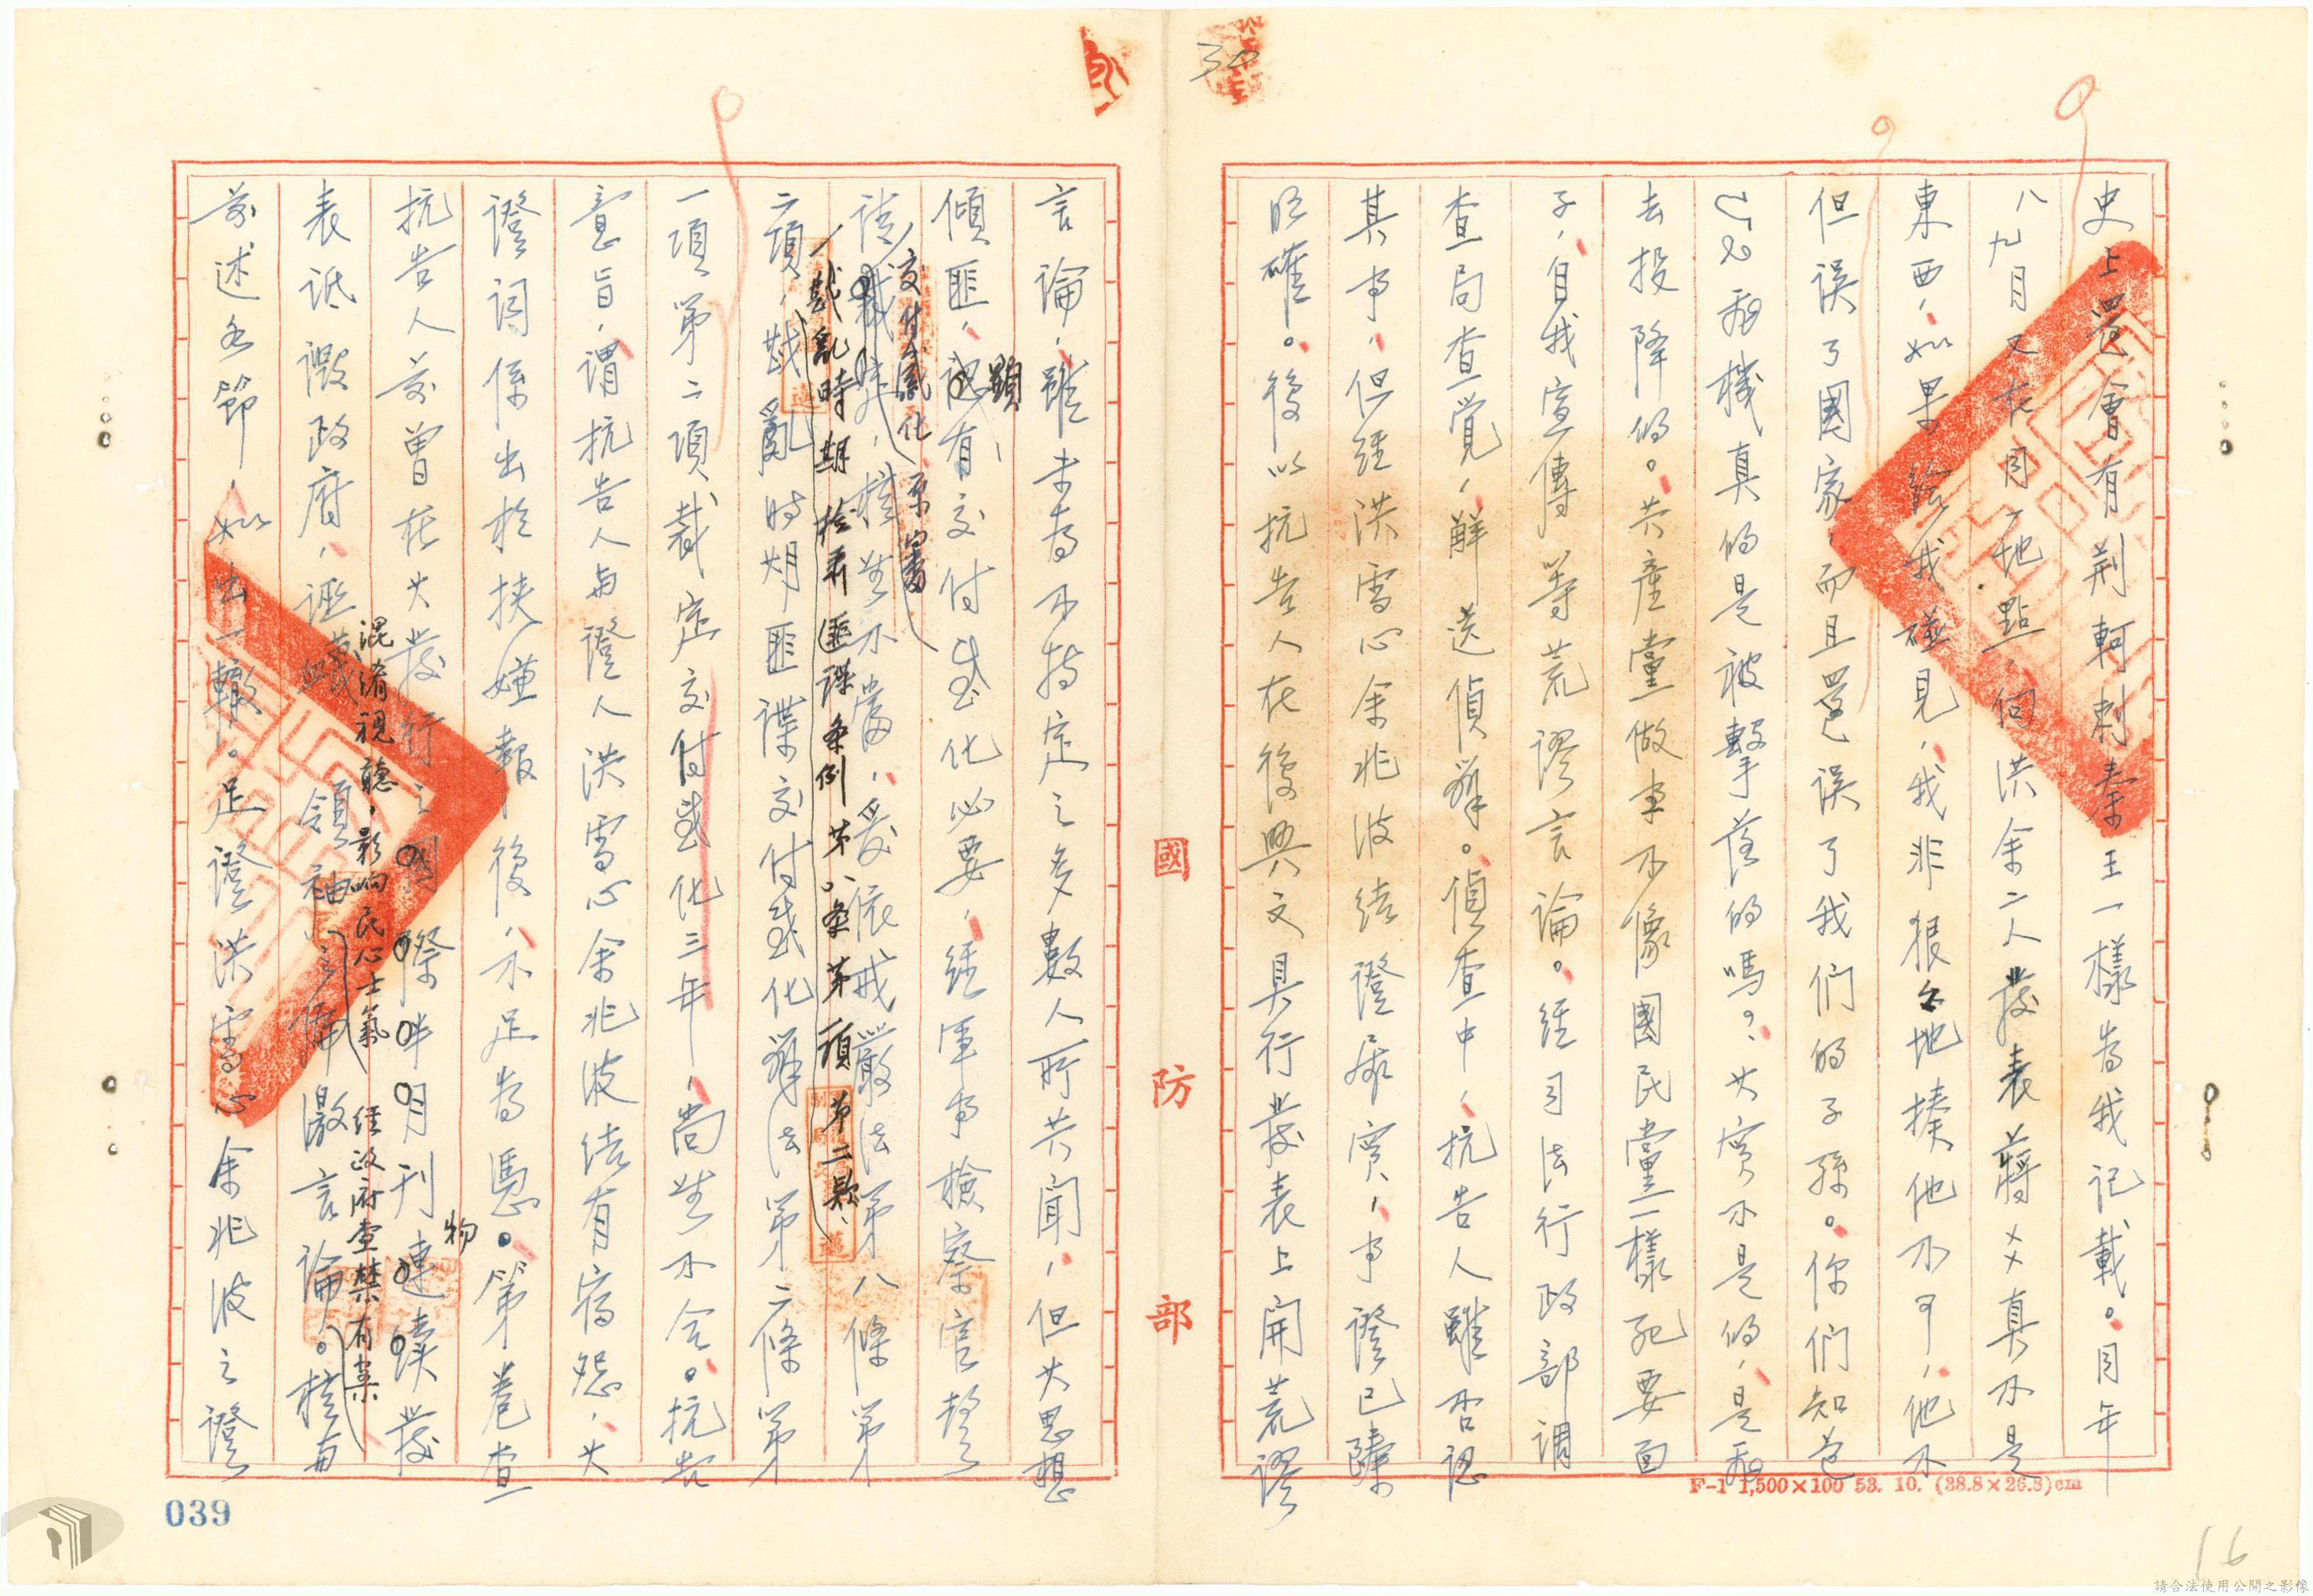 30
史上還會有荊軻刺秦王一樣為我記載。同年
八九月又在同一地點,向洪余二人發表蔣××真不是
東西,如果給我碰見,我非狠狠地揍他不可,他不
但誤了國家,而且還誤了我們的子孫。你們知道
U2飛機真的是被擊落的嗎?其實不是的,是飛
去投降的。共產黨做事不像國民黨一樣死要面
子,自我宣傳等荒謬言論。經司法行政部調
查局查覺,解送偵辦。偵查中,抗告人雖否認
其事,但經洪雪心余兆波結證屬實,事證已臻
明確。後以抗告人在後興文具行發表上開荒謬
國防部
F-1 1,500×100 53. 10. (38.8×26.8)cm
言論,雖未為不特定之多數人所共聞,但其思想
傾匪,認有交付感化必要,經軍事檢察官聲
顯
請裁定,核無不當,爰依戒嚴法第八條第
交付感化 原審
二項,戡亂時期匪諜交付感化辦法第二條第
戡亂時期檢肅匪諜条例第八条第一項第二款、
一項第二項裁定交付感化三年,尚無不合。抗告
意旨,謂抗告人與證人洪雪心余兆波結有宿怨,其
證詞係出於挾嫌報復,不足為憑。第卷查
抗告人前曾在其發行之國際半月刊連續發
物
表詆譭政府,誣衊領袖之偏激言論。核與
混淆視聽,影响民心士氣 經政府查禁有案
前述各節,如出一轍。足證洪雪心余兆波之證
039
16
請合法使用公開之影像